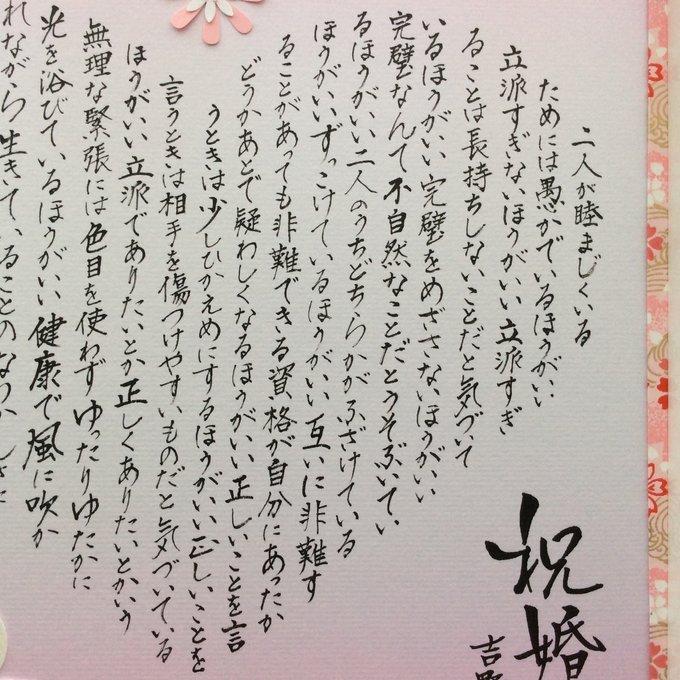 祝婚
吉野
二人が睦まじくいる
ためには愚かでいるほうがいい
立派すぎないほうがいい立派すぎ
ることは長持ちしないことだと気づいて
いるほうがいい完璧をめざさないほうがいい
完璧なんて不自然なことだとうそぶいてい
るほうがいい二人のうちどちらかがふざけている
ほうがいいずっこけているほうがいい互いに非難す
ることがあっても非難できる資格が自分にあったか
どうかあとで疑わしくなるほうがいい正しいことを言
うときは少しひかえめにするほうがいい正しいことを
言うときは相手を傷つけやすいものだと気づいている
ほうがいい立派でありたいとか正しくありたいとかいう
無理な緊張には色目を使わずゆったりゆたかに
光を浴びているほうがいい健康で風に吹か
れながら生きていることのなつかしさに